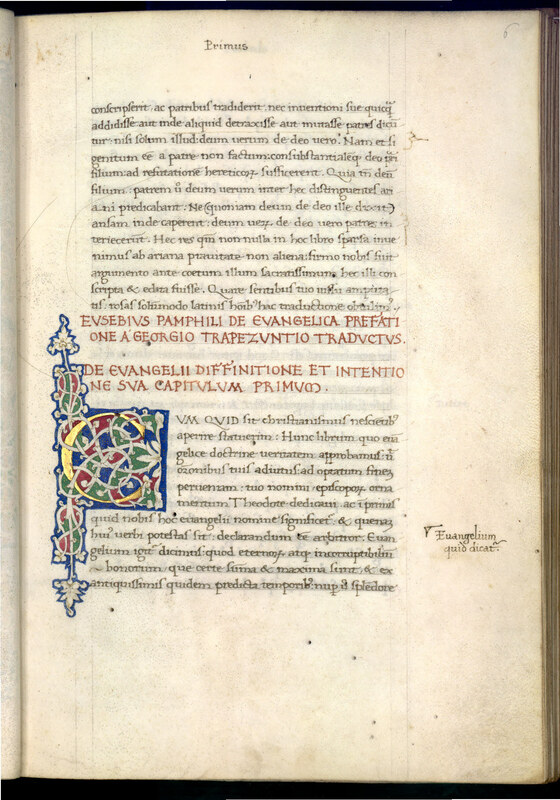 Primus
6
conscripserit · ac patribus tradiderit · nec inventioni sue quicq̃
addidisse aut inde aliquid detraxisse aut mutasse patres dicũ
tur · nisi solum illud: deum verum de deo vero · Nam et si
genitum eẽ a patre non factum: consubstantialeq; deo pr̃i
filium: ad refutatione hereticoꝝ sufficerent · Quia tñ deũ
filium: patrem ů deum verum inter hec distinguentes ari
ani predicabant · Ne (quoniam deum de deo ille dixit)
ansam inde caperent: deum veꝝ de deo vero patres in
teriecerunt · Hec res qm̃ non nulla in hoc libro sparsa inve
nimus ab ariana pravitate non aliena: firmo nobis fuit
argumento ante coetum illum sacratissimum hec illi con
scripta & edita fuisse · Quare sentibus
tis: rosas solummodo latinis hoĩbꝰ hac traductione
EUSEBIUS PAMPHILI DE EVANGELICA PREFATI
ONE A GEORGIO TRAPEZUNTIO TRADUCTUS ·
DE EVANGELII DIFFINITIONE ET INTENTIO
NE SUA CAPITULUM PRIMUM ·
CUM QUID sit christianismus nescientibꝰ
aperire statuerim: Hunc librum quo eua
gelice doctrine veritatem approbamus: ñ
or̃onibus tuis adiutus: ad optatum finez
perveniam: tuo nomini episcopoꝝ orna
mentum Theodote dedicavi · ac i primis
quid nobis hoc evangelii nomine significet · & quenaz
huiꝰ verbi potestas sit: declarandum ee arbitror · Evan
gelium igit̃ dicimus: quod eternoꝝ atq; incorruptibiliũ
bonorum · que certe suma & maxima sunt · & ex
antiquissimis quidem predicta temporibꝰ: nup ů splẽdore
Evangelium
quid dicat̃ ·